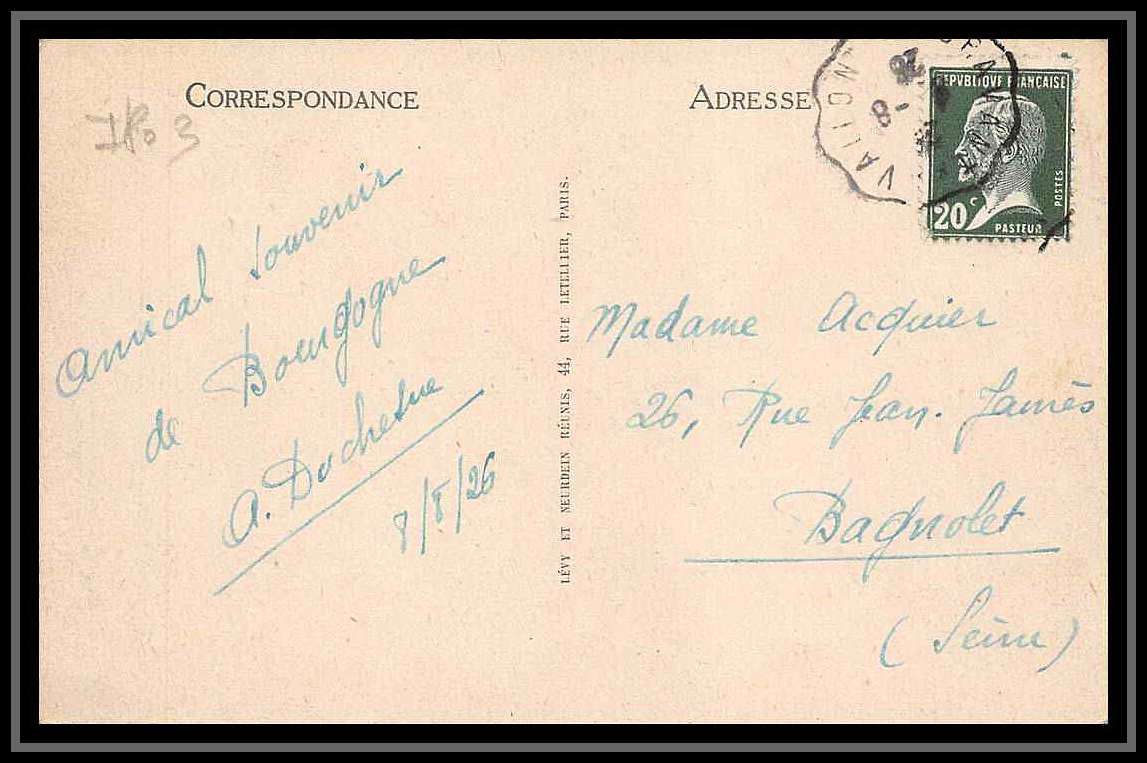 CORRESPONDANCE
Amical souvenir
de Bourgogne
A. Duchesne
8/8/26
LÉVY ET NEURDEIN RÉUNIS, 44, RUE LETELLIER, PARIS.
ADRESSE
8 -
26
REPVBLIQVE FRANÇAISE
POSTES
20 c
PASTEUR
Madame Acquier
26, Rue Jean. Jaurès
Bagnolet
(Seine)